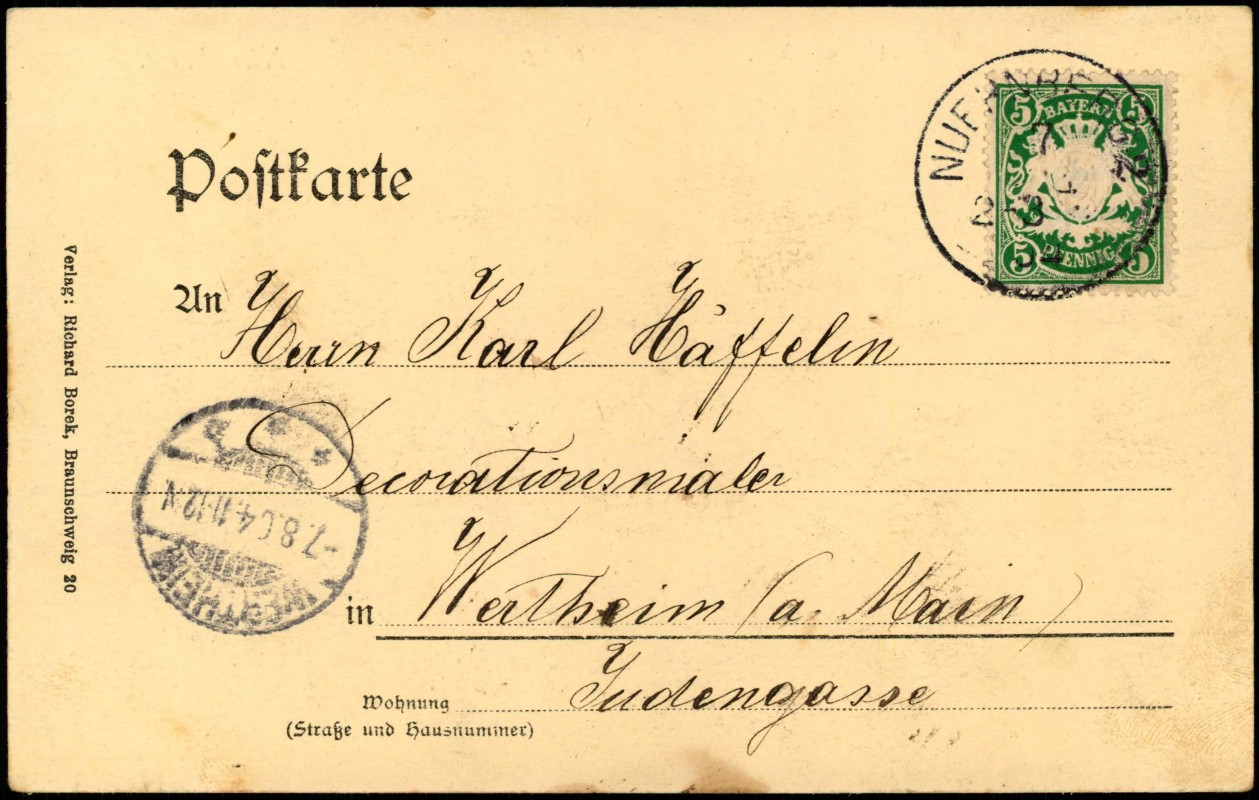 Postkarte
5 BAYERN 5
5 PFENNIG 5
NUERNBERG
7
An Herrn Karl Häffelin
Decorationsmaler
in Wertheim (a. Main)
Judengasse
Wohnung
(Straße und Hausnummer)
Verlag: Richard Borek, Braunschweig 20
WERTHEIM
-7.8.04.11-12 N